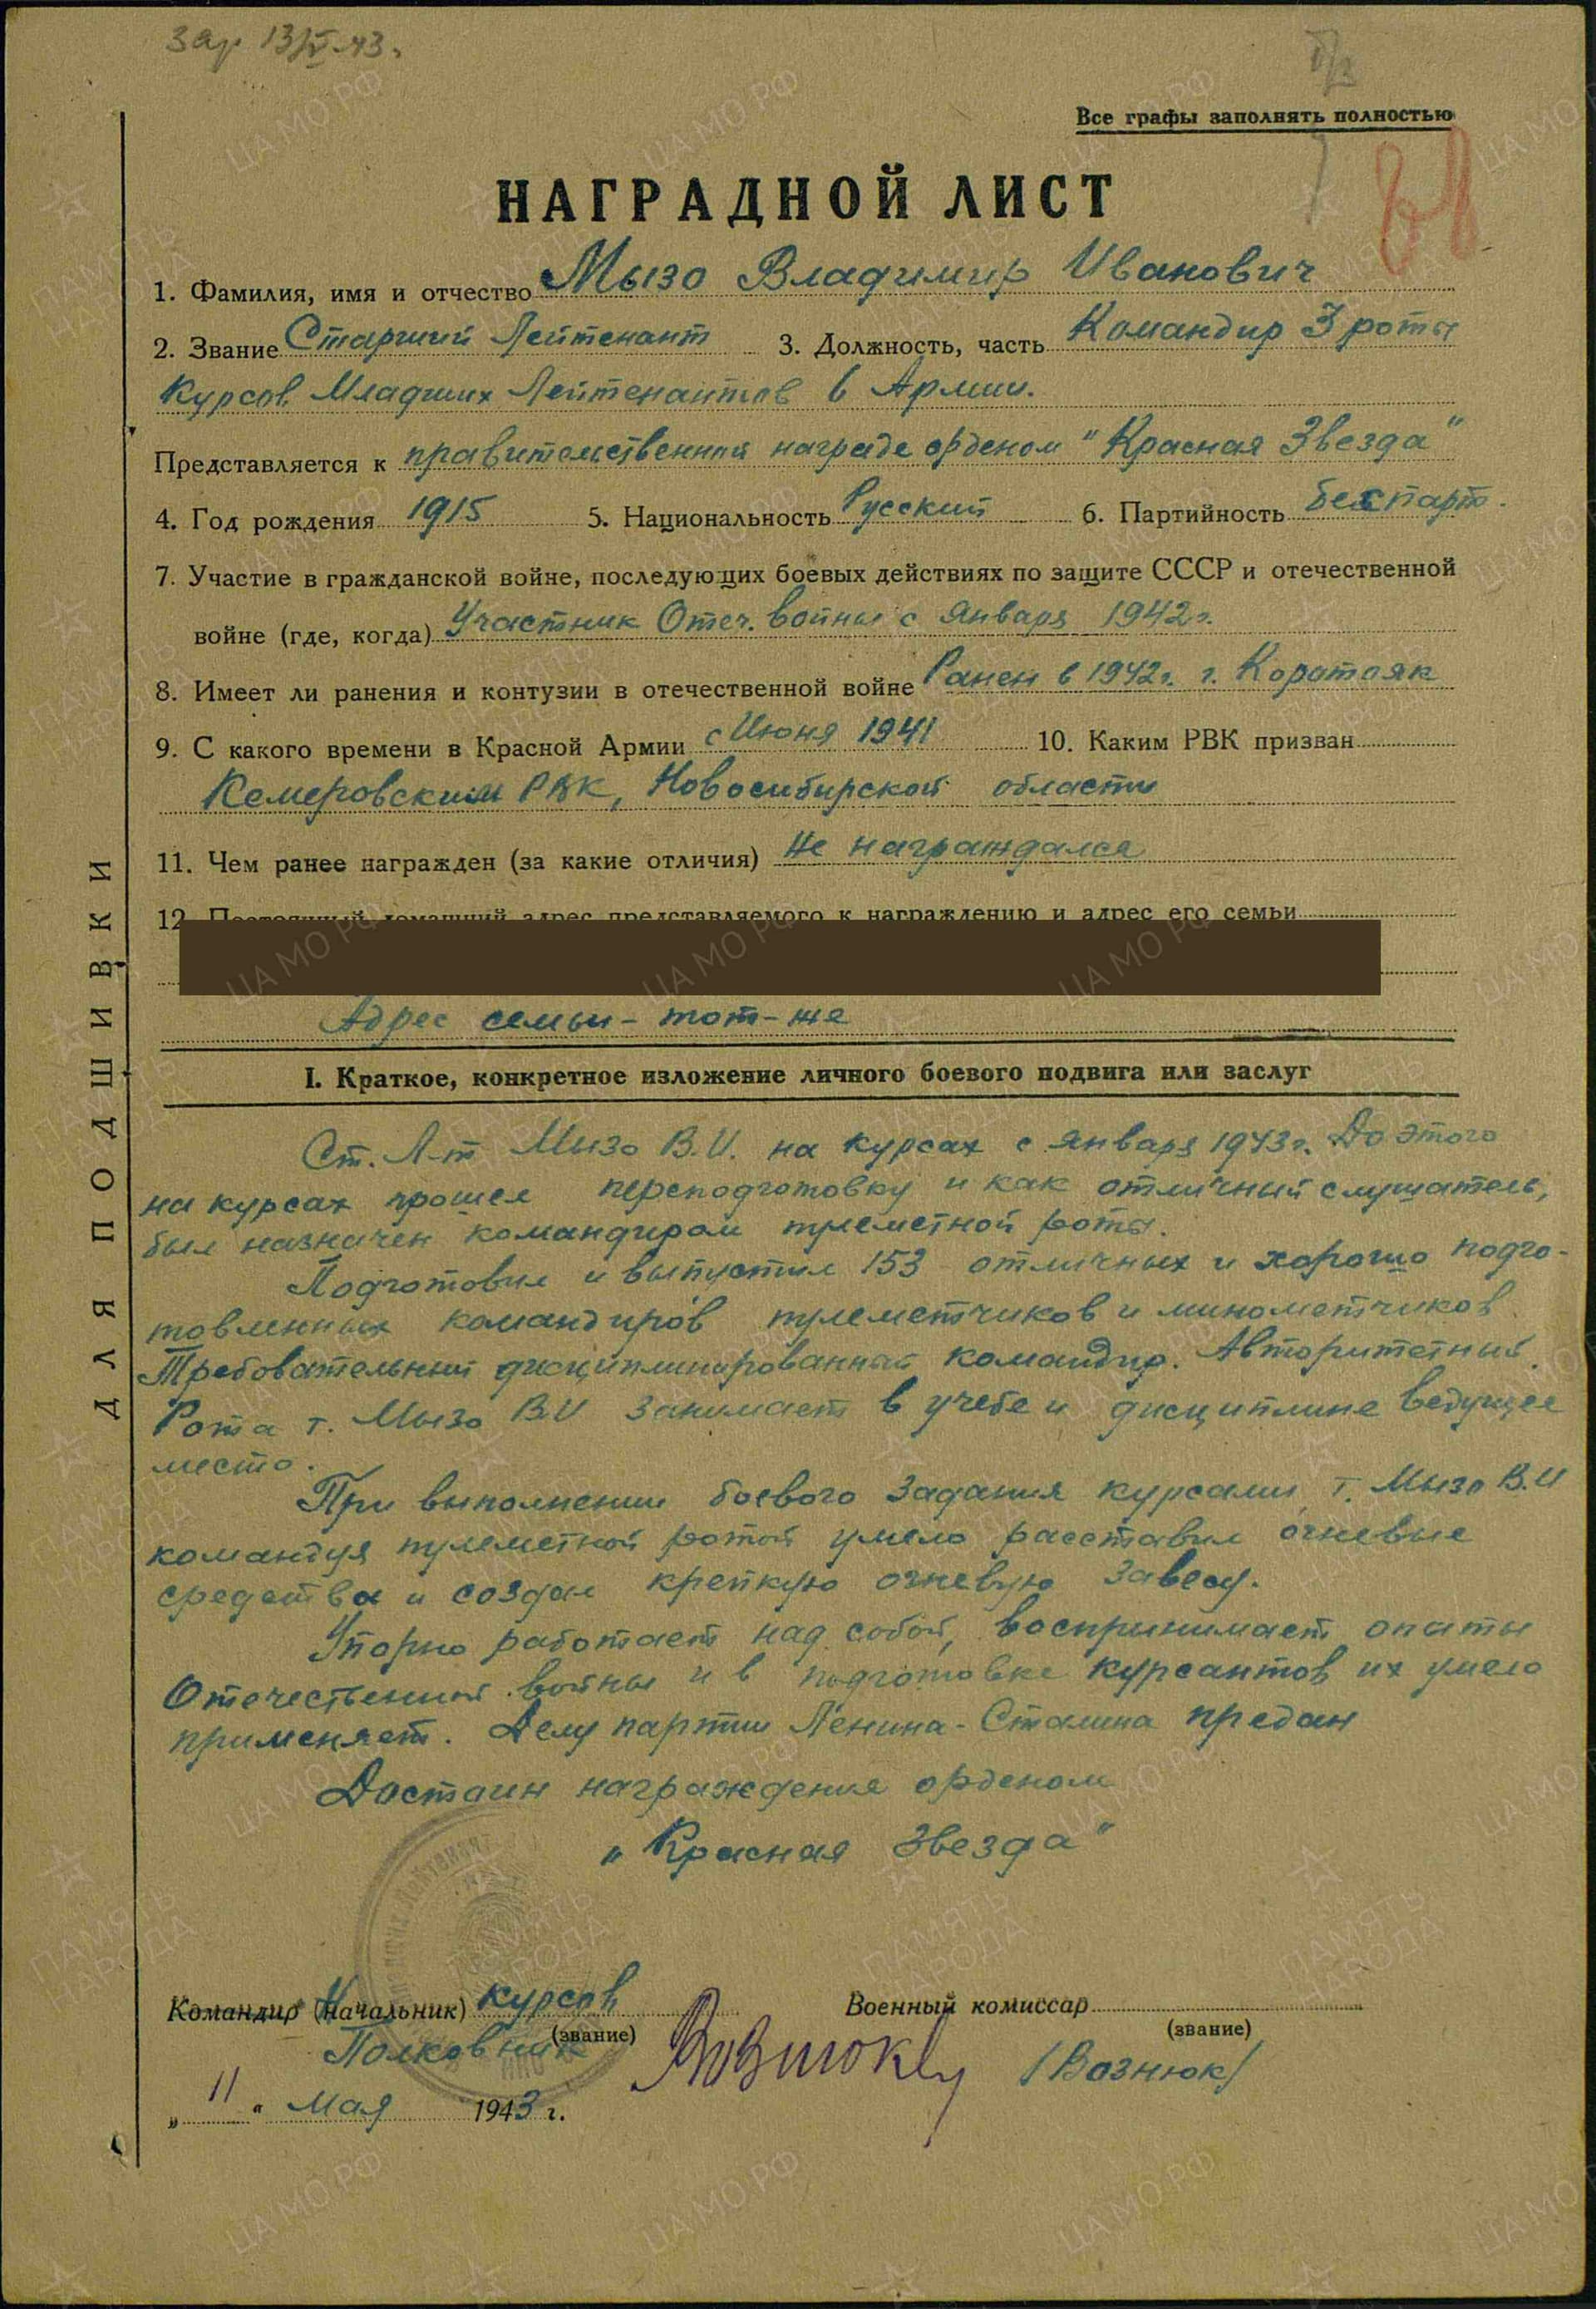 Зар 13/V-43г.
Все графы заполнять полностью
НАГРАДНОЙ ЛИСТ
1. Фамилия, имя и отчество Мызо Владимир Иванович
2. Звание Старший Лейтенант 3. Должность, часть Командир 3 роты
Курсов Младших Лейтенантов 6 Армии.
Представляется к правительственной награде орденом "Красная Звезда"
4. Год рождения 1915 5. Национальность Русский 6. Партийность беспарт.
7. Участие в гражданской войне, последующих боевых действиях по защите СССР и отечественной
войне (где, когда) Участник Отеч. войны с Января 1942г.
8. Имеет ли ранения и контузии в отечественной войне Ранен в 1942г. г. Коротояк
9. С какого времени в Красной Армии с Июня 1941 10. Каким РВК призван
Кемеровским РВК, Новосибирской области
11. Чем ранее награжден (за какие отличия) Не награждался
12. Постоянный домашний адрес представляемого к награждению и адрес его семьи
Адрес семьи - тот-же
I. Краткое, конкретное изложение личного боевого подвига или заслуг
Ст. Л-т Мызо В.И. на курсах с Января 1943г. До этого
на курсах прошел переподготовку и как отличный слушатель,
был назначен командиром пулеметной роты.
Подготовил и выпустил 153 отличных и хорошо подго-
товленных командиров пулеметчиков и минометчиков.
Требовательный дисциплинированный командир. Авторитетный.
Рота т. Мызо В.И занимает в учебе и дисциплине ведущее
место.
При выполнении боевого задания курсами, т. Мызо В.И
командуя пулеметной ротой умело расставил огневые
средства и создал крепкую огневую завесу.
Упорно работает над собой, воспринимает опыты
Отечественной войны и в подготовке курсантов их умело
применяет. Делу партии Ленина-Сталина предан
Достоин награждения орденом
„Красная Звезда"
Командир (Начальник) курсов Военный комиссар
(звание) (звание)
Полковник Вознюк /Вознюк/
„11" Мая 1943 г.
ДЛЯ ПОДШИВКИ
ЦА МО РФ
ПАМЯТЬ НАРОДА